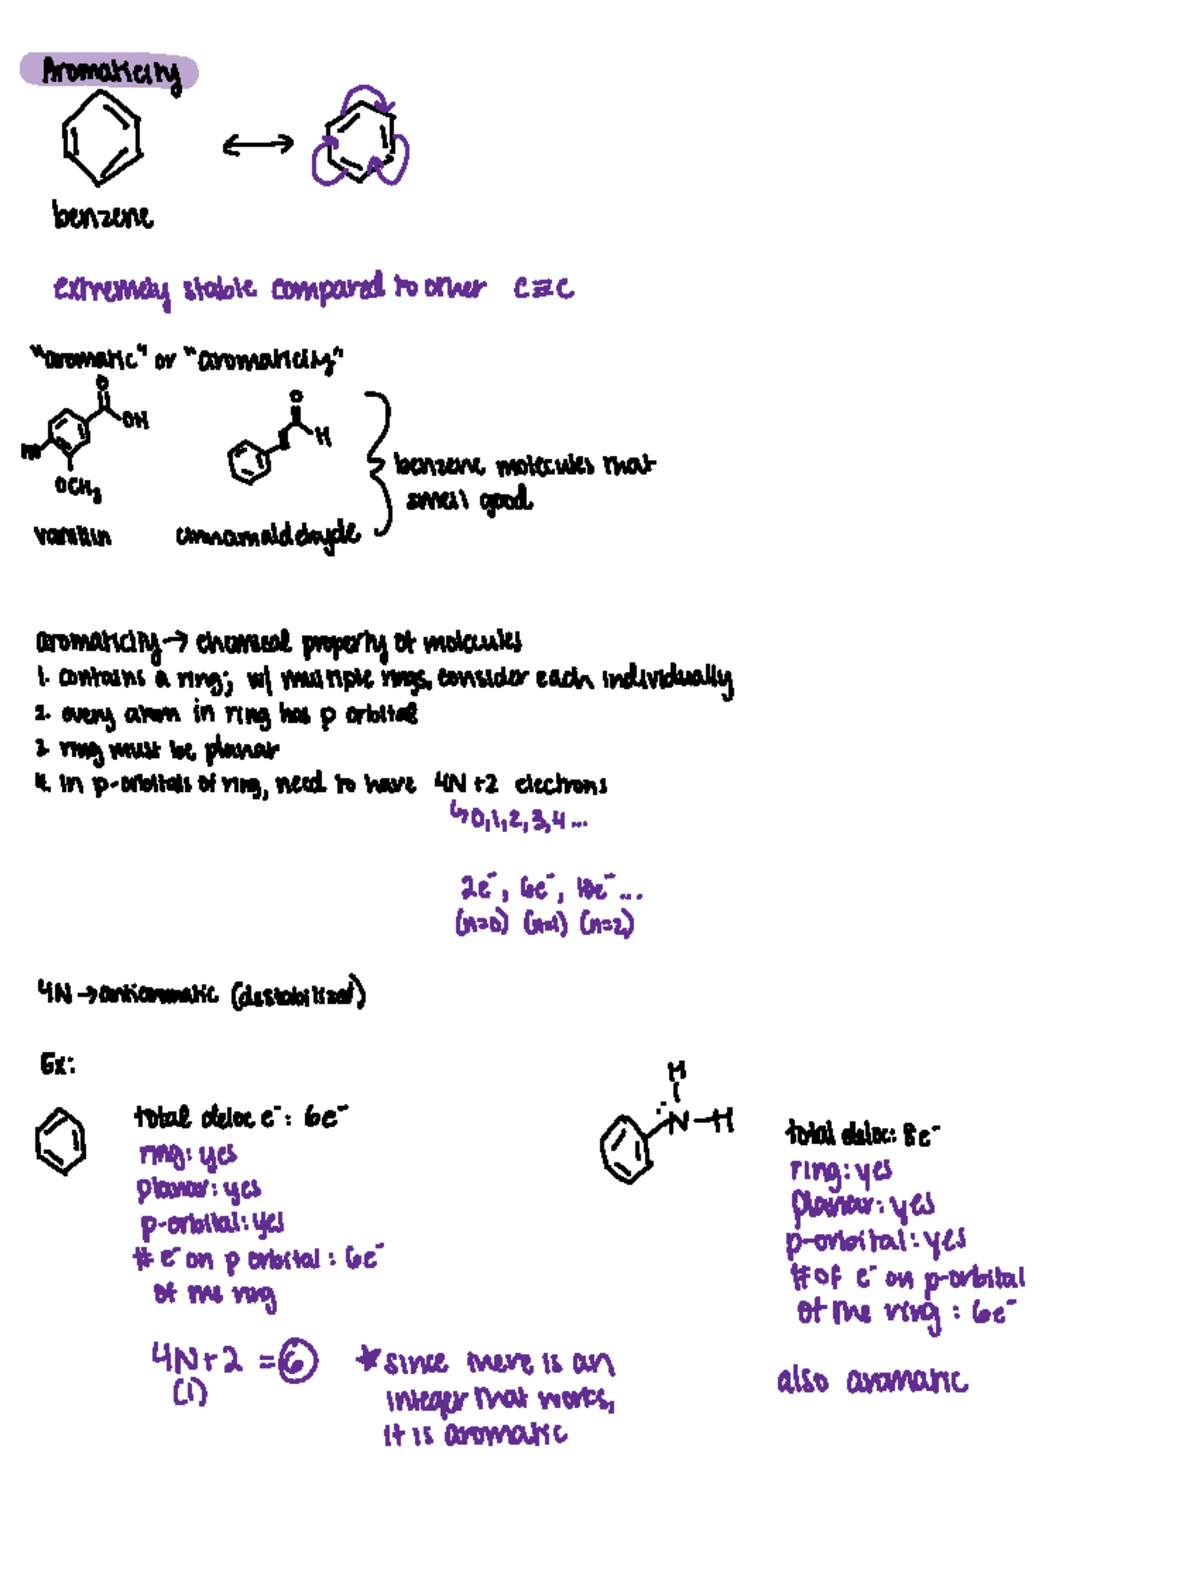 Aromaticity
benzene
extremely stable compared to other C=C
"aromatic" or "aromaticity"
O
OH
OCH3
vanillin
O
H
cinnamaldehyde
benzene molecules that
smell good
aromaticity → chemical property of molecules
1. contains a ring; w/ multiple rings, consider each individually
2. every atom in ring has p orbital
3. ring must be planar
4. in p-orbitals of ring, need to have 4N+2 electrons
↳ 0,1,2,3,4...
2e⁻, 6e⁻, 10e⁻...
(n=0) (n=1) (n=2)
4N → antiaromatic (destabilized)
Ex:
total deloc e⁻: 6e⁻
ring: yes
planar: yes
p-orbital: yes
# e⁻ on p orbital: 6e⁻
of the ring
4N+2 = 6
(1)
*since there is an
integer that works,
it is aromatic
H
N-H
total deloc: 8e⁻
ring: yes
planar: yes
p-orbital: yes
# of e⁻ on p-orbital
of the ring: 6e⁻
also aromatic